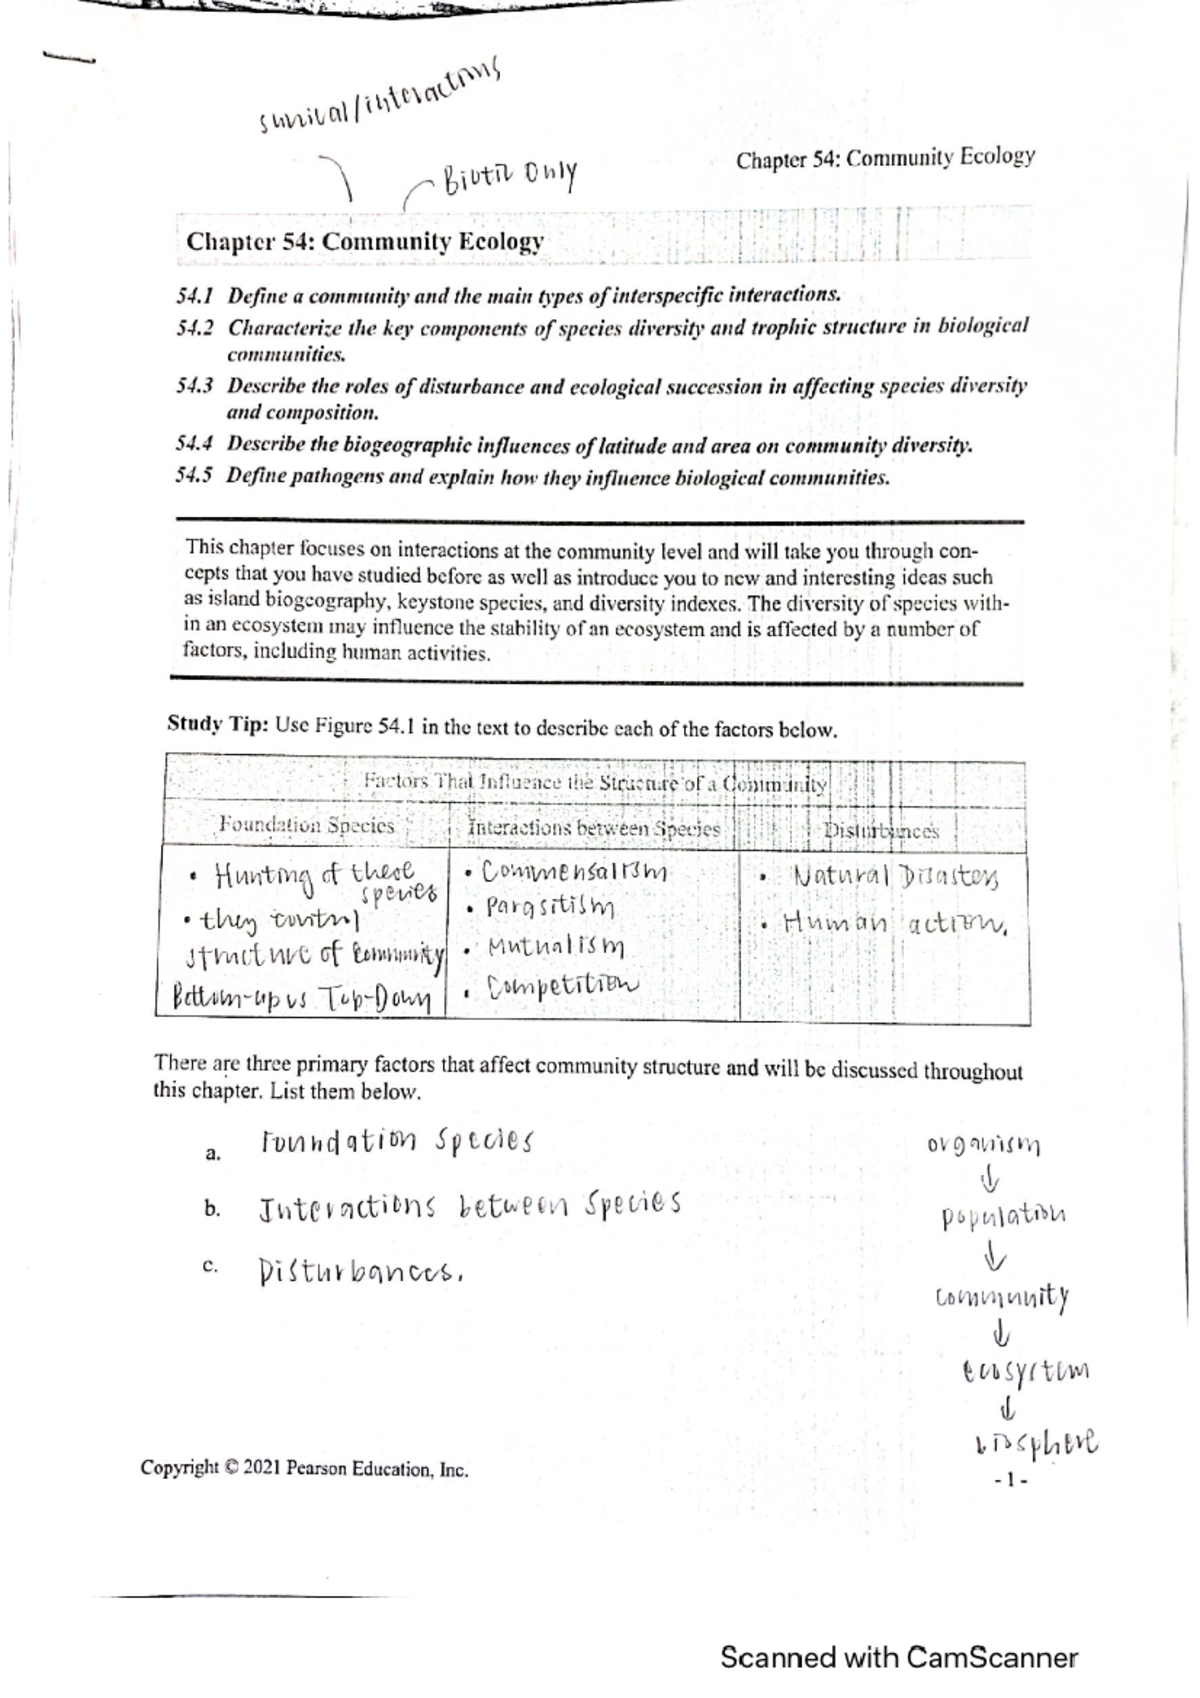 survival/interactions
Biotic Only
Chapter 54: Community Ecology
Chapter 54: Community Ecology
54.1 Define a community and the main types of interspecific interactions.
54.2 Characterize the key components of species diversity and trophic structure in biological
communities.
54.3 Describe the roles of disturbance and ecological succession in affecting species diversity
and composition.
54.4 Describe the biogeographic influences of latitude and area on community diversity.
54.5 Define pathogens and explain how they influence biological communities.
This chapter focuses on interactions at the community level and will take you through con-
cepts that you have studied before as well as introduce you to new and interesting ideas such
as island biogeography, keystone species, and diversity indexes. The diversity of species with-
in an ecosystem may influence the stability of an ecosystem and is affected by a number of
factors, including human activities.
Study Tip: Use Figure 54.1 in the text to describe each of the factors below.
Factors That Influence the Structure of a Community
Foundation Species
• Hunting of these
species
• they control
structure of community
Bottom-up vs Top-Down
Interactions between Species
• Commensalism
• Parasitism
• Mutualism
• Competition
Disturbances
• Natural Disasters
• Human action.
There are three primary factors that affect community structure and will be discussed throughout
this chapter. List them below.
a. Foundation Species
b. Interactions between Species
c. Disturbances.
organism
↓
population
↓
community
↓
ecosystem
↓
biosphere
Copyright © 2021 Pearson Education, Inc.
- 1 -
Scanned with CamScanner